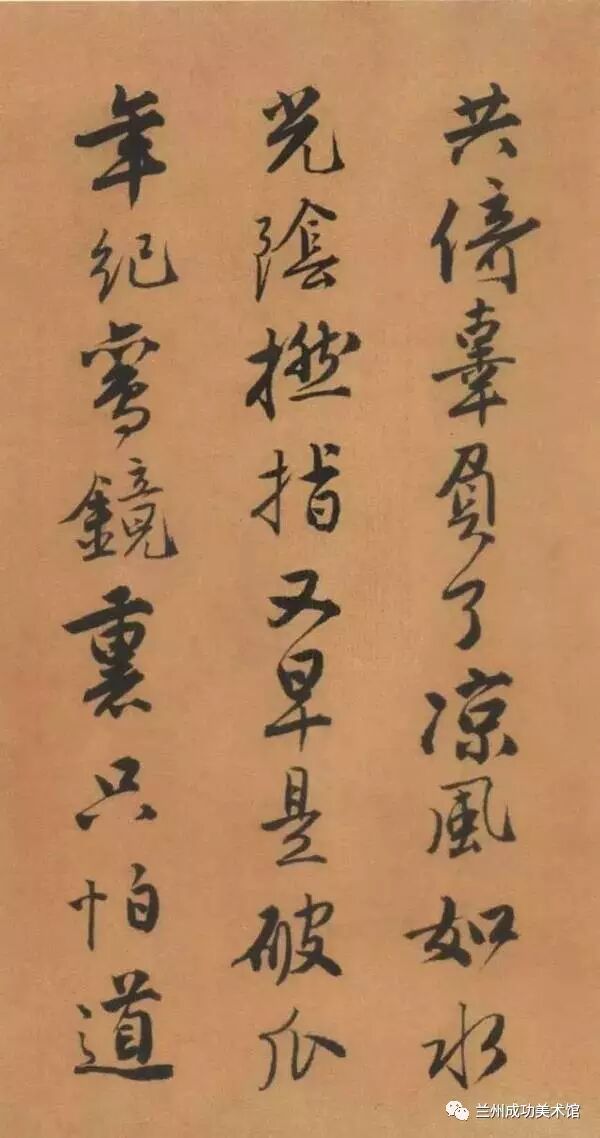 共倚辜負了凉風如水
光陰撚指又早是破瓜
年紀鸞鏡裏只怕道
兰州成功美术馆